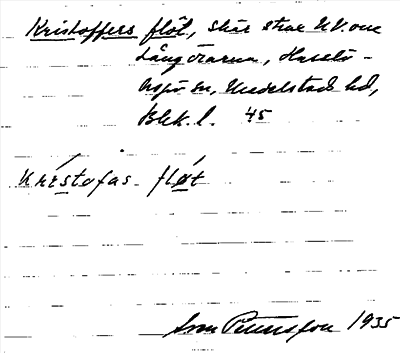 Kristoffers flöt, skär strax NV. om
Långörarna, Hasslö-
Aspö sn, Medelstads hd,
Blek. l. 45
Krístofas fløt
Sven Petersson 1935